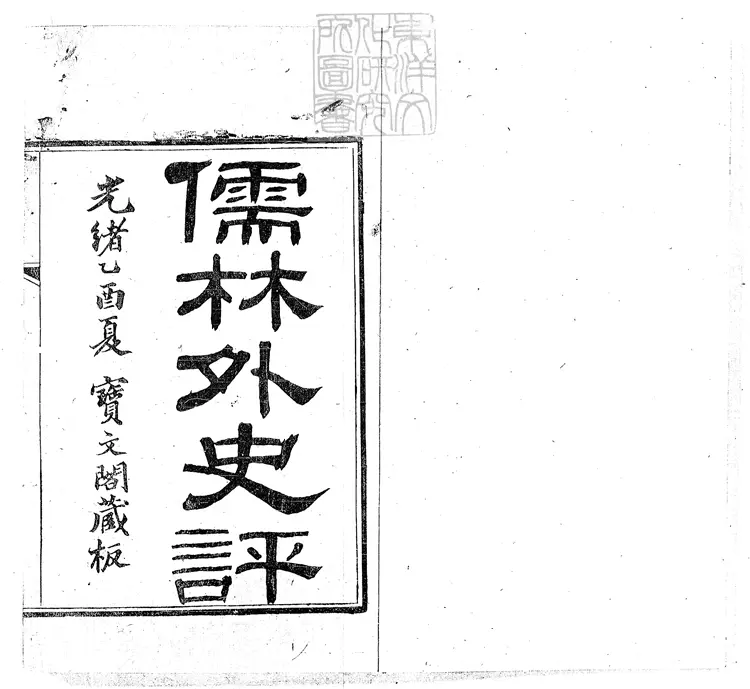 東洋文
化研究
所圖書
儒林外史評
光緒乙酉夏 寶文閣藏板